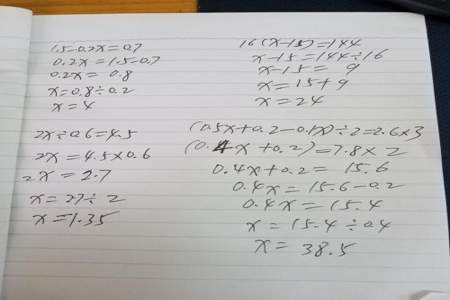 1.5-0.2x=0.7
0.2x=1.5-0.7
0.2x=0.8
x=0.8÷0.2
x=4
16(x-15)=144
x-15=144÷16
x-15=9
x=15+9
x=24
2x÷0.6=4.5
2x=4.5×0.6
2x=2.7
x=27÷2
x=1.35
(0.5x+0.2-0.1x)÷2=2.6×3
(0.4x+0.2)=7.8×2
0.4x+0.2=15.6
0.4x=15.6-0.2
0.4x=15.4
x=15.4÷0.4
x=38.5